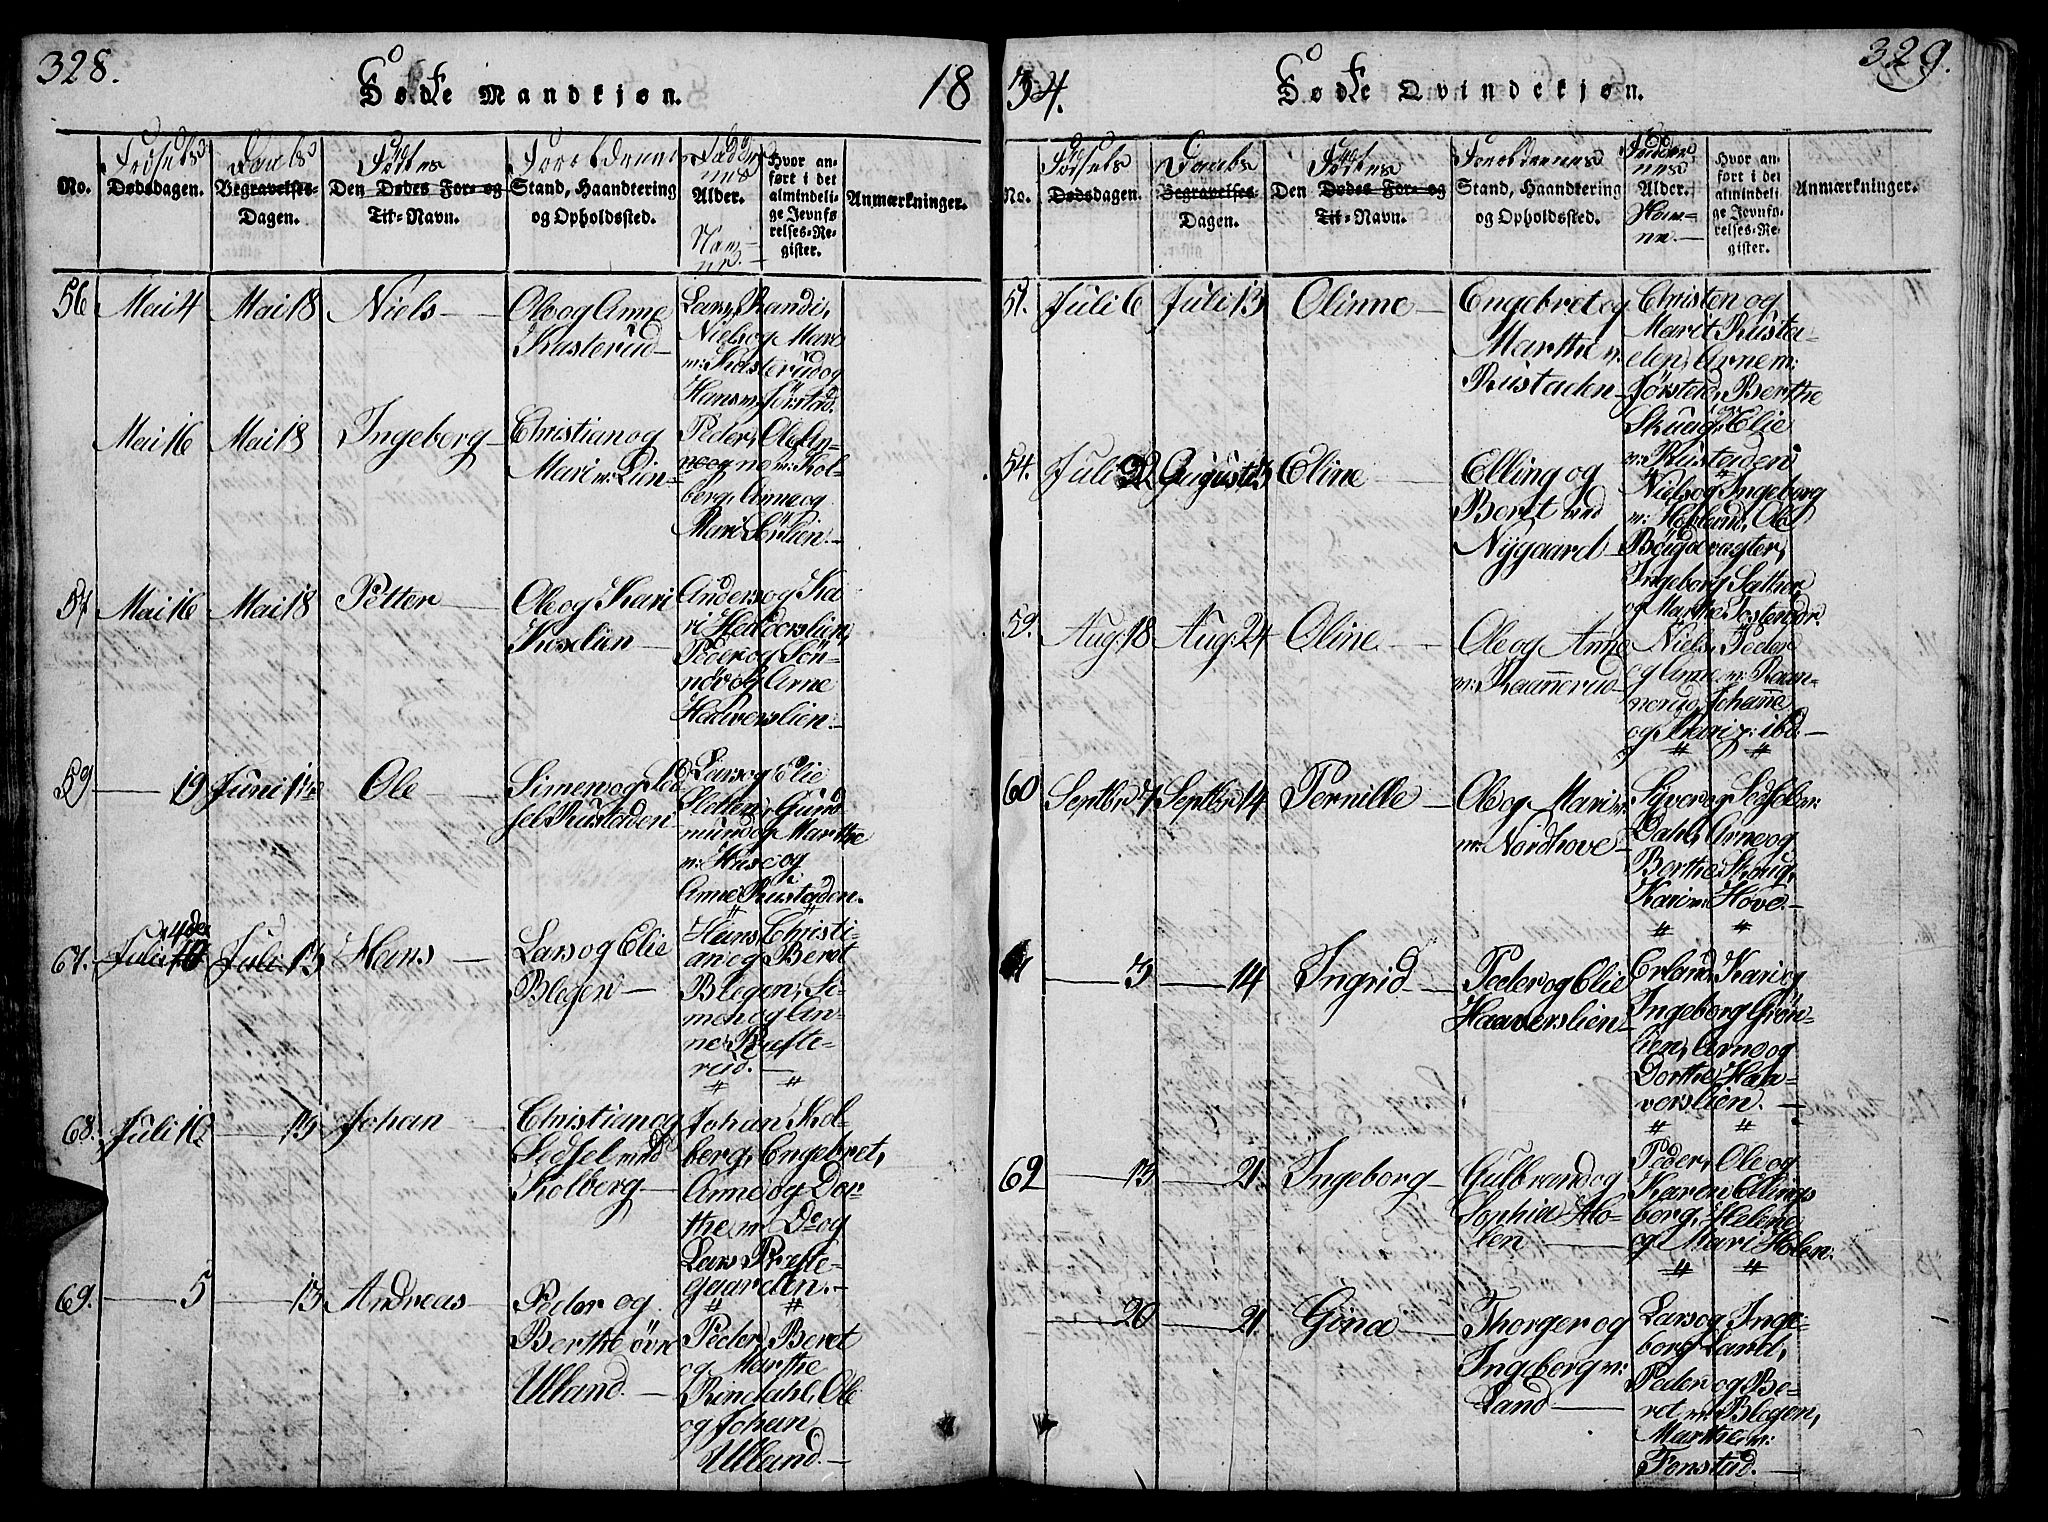 328.
Fødte Mandkjøn.
18
No.
Fødsels
Dødsdagen.
Daabs
Begravelses-
Dagen.
Fødtes
Den Dødes For- og
Til-Navn.
Forældrenes
Stand, Haandtering
og Opholdssted.
Fadder-
nes
Alder.
Nav-
ne.
Hvor an-
ført i det
almindeli-
ge Jevnfø-
relses-Re-
gister.
Anmærkninger.
56 Mai 4 Mai 18 Niels
Ole og Anne
Kasterud
Lars, Randi,
Niels og Mari
m: Kasterud og
Hans m: Jørstad.
Mai 16 Mai 18 Ingeberg
Christian og
Mari m: Lien
Peder, Ole An-
ne og m: Kol-
berg, Anne og
Mari Sørlien.
57 Mai 16 Mai 18 Petter
Ole og Kari
Koslien
Anders og Ka-
ri Haaverslien,
Peder og Søn-
nøv og Arne
Haaverslien.
59 19 Juni 1te Ole
Simen og Sid-
sel Rustaden
Lars og Elie
Sletten, Gud-
mund og Marthe
m: Huse og
Anne Rustaden.
67. 4de
Juli 10 Juli 13 Hans
Lars og Elie
Blegen
Hans, Christi-
an og Beret
Blegen, Si-
men og An-
ne Refte-
rud.
68. Juli 10 13 Johan
Christian og
Sidsel med
Kolberg
Johan Kol-
berg, Engebret,
Anne og Dor-
the m: Do og
Lars Præste-
gaarden.
69. 5 13 Andreas
Peder og
Berthe øvre
Ulland.
Peder, Beret
og Marthe
Rindahl, Ole
og Johan
Ulland.
34.
Fødte Qvindekjøn.
329.
No.
Fødsels
Dødsdagen.
Daabs
Begravelses
Dagen.
Fødtes
Den Dødes For- og
Til-Navn.
Forældrenes
Stand, Haandtering
og Opholdssted.
Fadder-
nes
Alder.
Nav-
ne.
Hvor an-
ført i det
almindeli-
ge Jevnfø-
relses-Re-
gister.
Anmærkninger.
51. Juli 6 Juli 13 Olinne
Engebret og
Marthe m:
Rustaden
Christen og
Marit Rusta-
den, Arne m:
Jørstad, Berthe
Skuug, og Elie
m: Rustaden
54. Juli 22 August 3 Eline
Elling og
Berit ved
Nygaard
Niels og Ingeborg
m: Hovland, Ole
Bøigdevagter,
Ingeborg Sæther
og Marthe
59. Aug: 18 Aug: 24 Oline
Ole og Anne
m: Raannerud
Niels, Peder
og Anne m: Raan-
nerud, Johanne
og Mari z: ibd:
60 Septbr 7 Septbr 14 Pernille
Ole og Mari
m: Nordhove
Syver og Sidsel m:
Dahl, Arne og
Berthe Skoug,
Kari m: Hove.
5 14 Ingrid
Peder og Elie
Haaverslien
Erland, Kari og
Ingeborg Grøn-
lien, Arne og
Dorthe Haa-
verslien.
62 13 21 Ingeborg
Gulbrand og
Sophie Ho-
len
Peder, Ole og
Karen Ellings
berg, Helene
og Mari Holen.
20 21 Gøna
Thorger og
Ingeberg m:
Land
Lars og Inge-
borg Land,
Peder og Be-
ret m: Blegen,
Marthe m:
Fonstad.